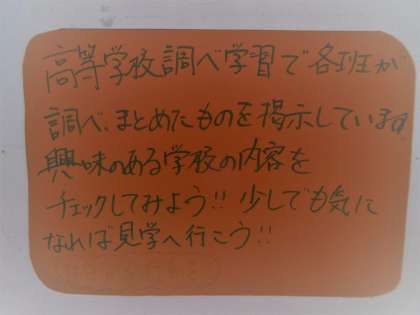 高等学校調べ学習で各班が
調べ、まとめたものを掲示しています
興味のある学校の内容を
チェックしてみよう!! 少しでも気に
なれば見学へ行こう!!